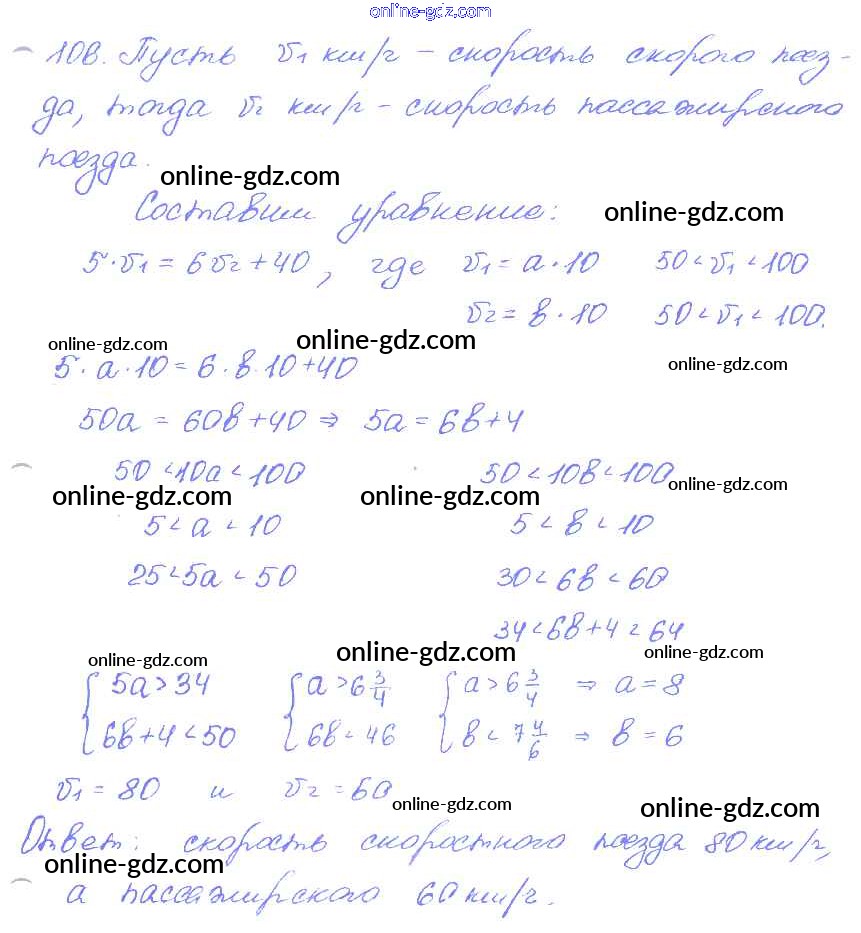 online-gdz.com
108. Пусть v₁ км/ч – скорость скорого поез-
да, тогда v₂ км/ч – скорость пассажирского
поезда.
online-gdz.com
Составим уравнение: online-gdz.com
5·v₁ = 6v₂ + 40, где v₁ = a·10 50 < v₁ < 100
v₂ = b·10 50 < v₁ < 100.
online-gdz.com online-gdz.com
5·a·10 = 6·b·10 + 40 online-gdz.com
50a = 60b + 40 ⇒ 5a = 6b + 4
50 < 10a < 100 50 < 10b < 100 online-gdz.com
online-gdz.com online-gdz.com
5 < a < 10 5 < b < 10
25 < 5a < 50 30 < 6b < 60
34 < 6b + 4 < 64
online-gdz.com online-gdz.com online-gdz.com
{ 5a > 34 { a > 6 3/4 { a > 6 3/4 ⇒ a = 8
6b + 4 < 50 6b < 46 b < 7 4/6 ⇒ b = 6
v₁ = 80 и v₂ = 60
online-gdz.com online-gdz.com
Ответ: скорость скоростного поезда 80 км/ч,
online-gdz.com
а пассажирского 60 км/ч.